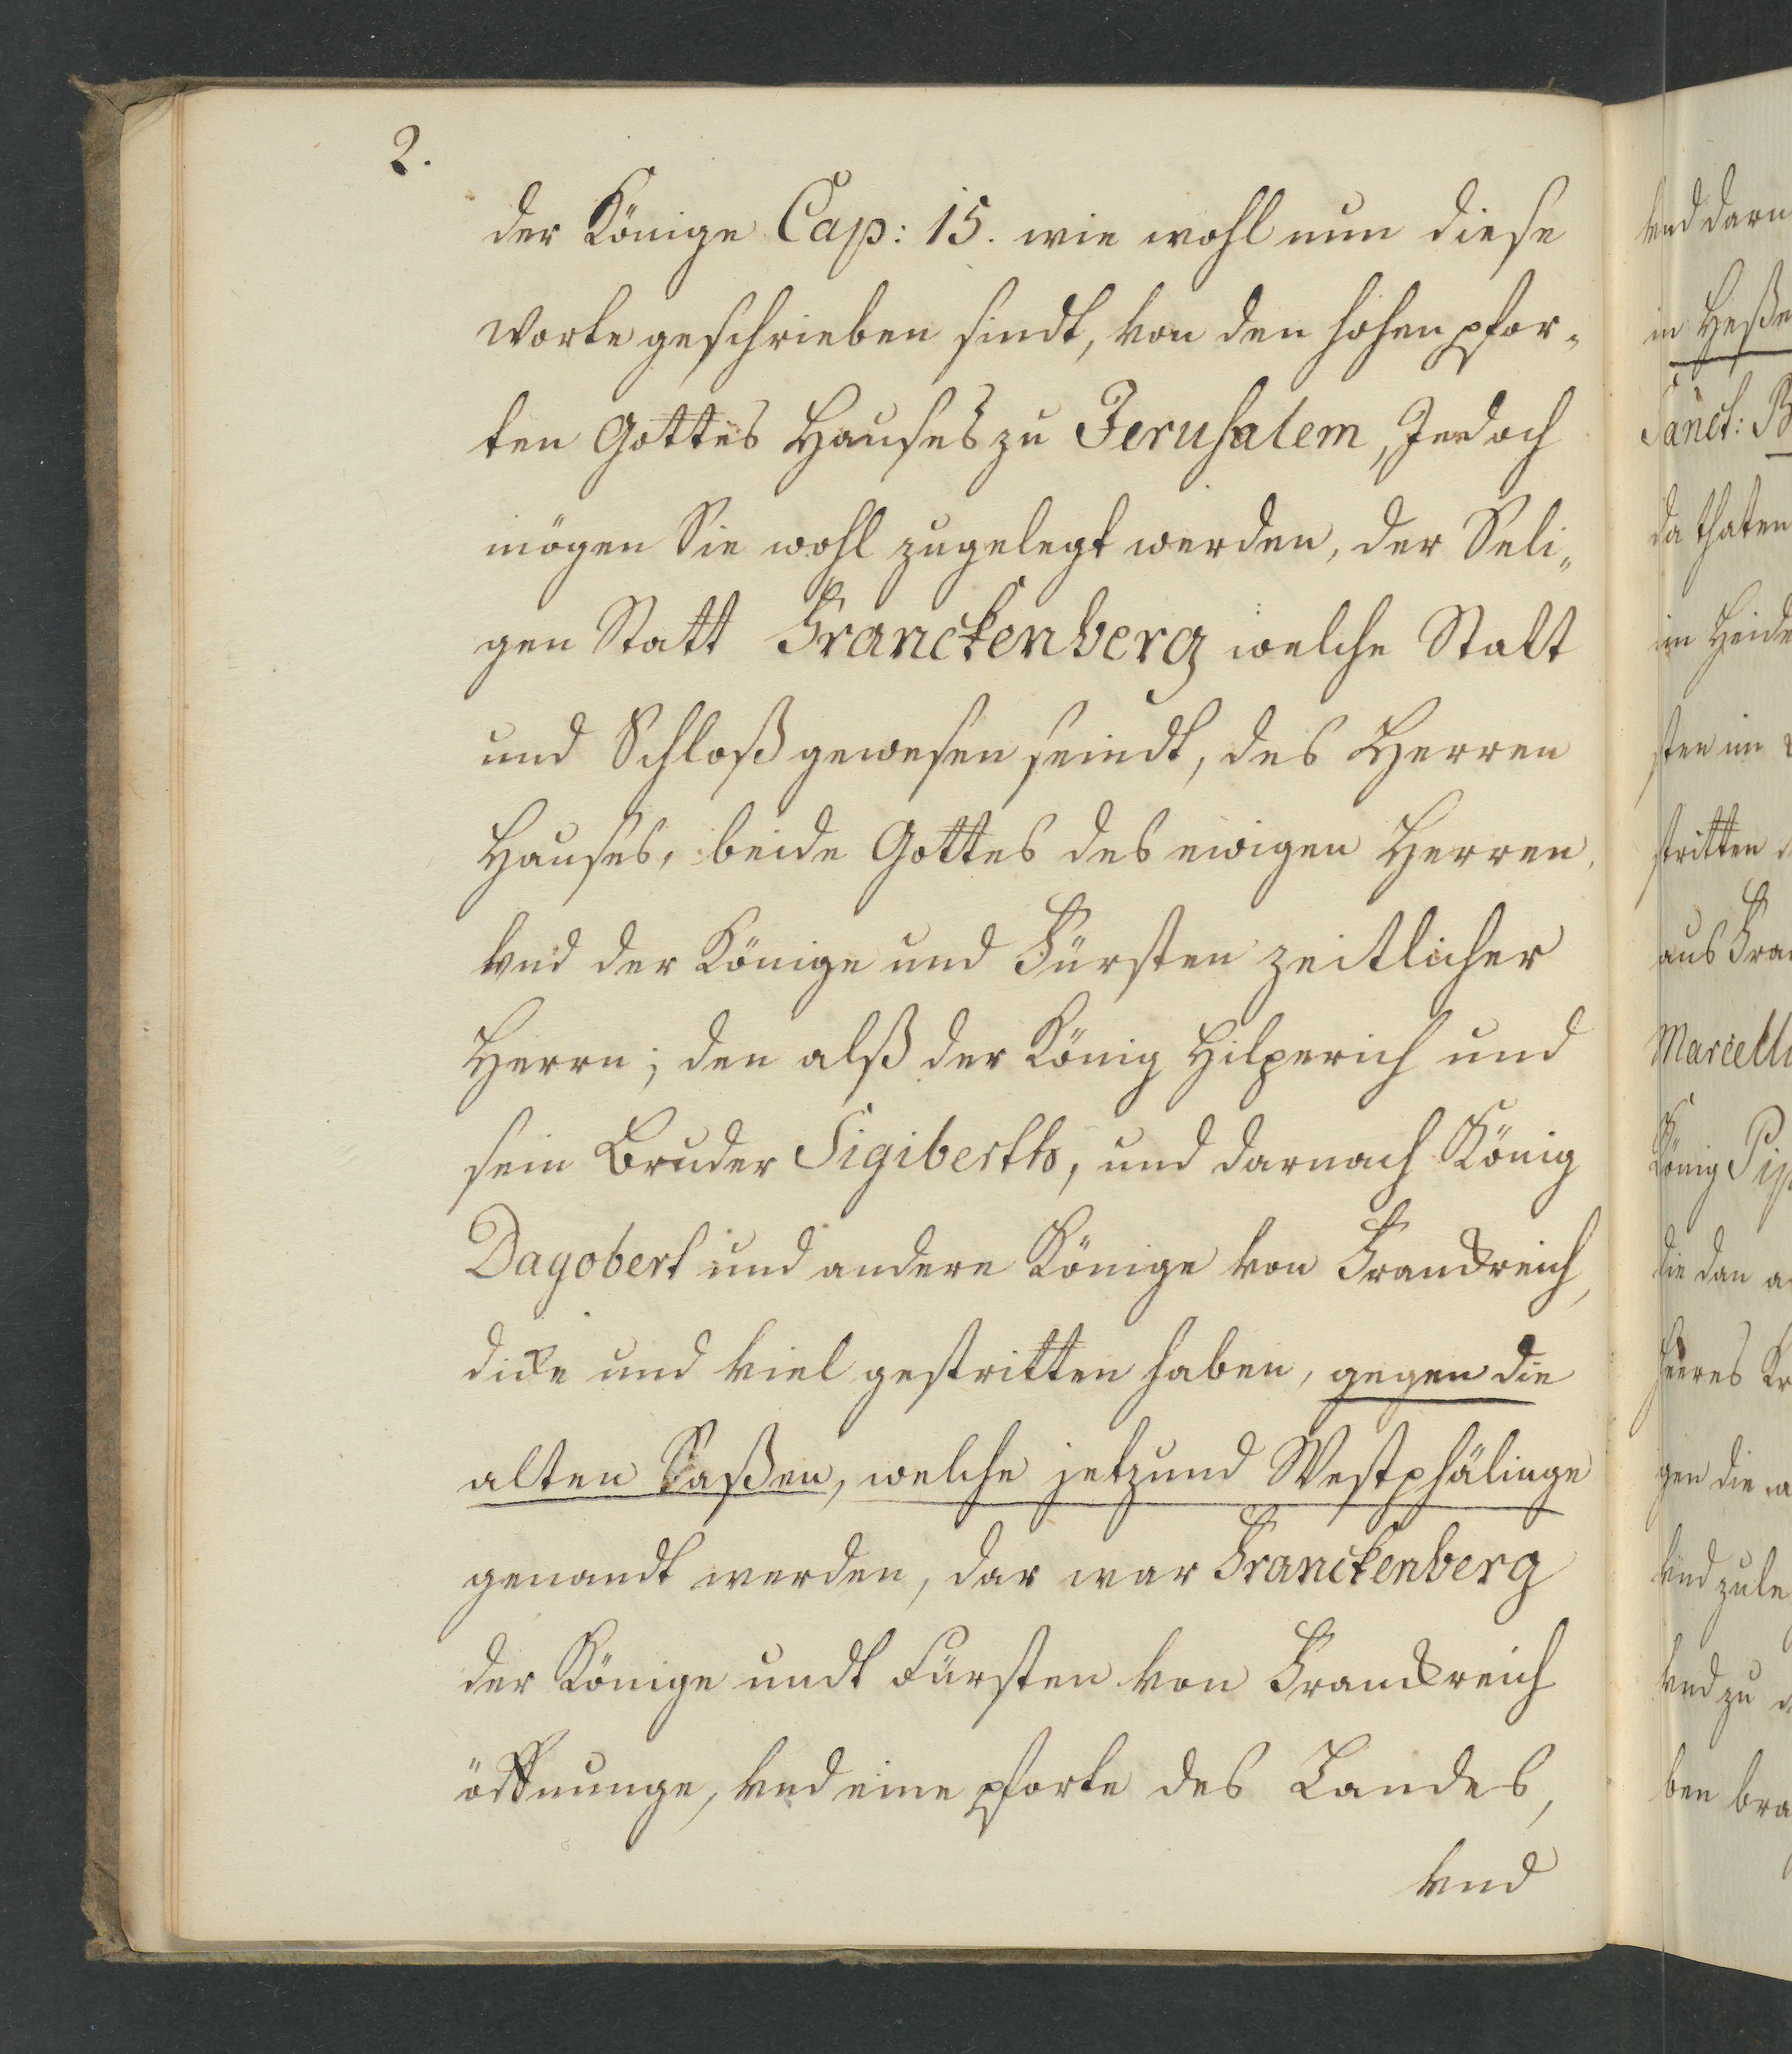 2.
der Könige Cap: 15. wie wohl nun diese
Worte geschrieben sindt, von den hohen pfor„
ten Gottes Hauses zu Jerusalem, Jedoch
mögen Sie wohl zugelegt werden, der Seli„
gen Statt Franckenberg welche Statt
und Schloß gewesen seindt, des Herren
Hauses, beide Gottes des ewigen Herren,
vnd der Könige und Fürsten zeitlicher
Herrn; den alß der König Hilperich und
sein Bruder Sigiberth, und darnach König
Dagobert und andere Könige von Franckreich,
dicke und viel gestritten haben, gegen die
alten Saßen, welche jetzund Westphälinge
genandt werden, dar war Franckenberg
der Könige undt Fürsten von Franckreich
öffnunge, vnd eine pforte des Landes,
vnd
vnd darn
in Heße
Sanct: B
da thaten
im Heide
sten im
stritten d
aus Fran
Marcell
König Pip
die dan a
heeres Kr
gen die a
vnd zule
vnd zu
ben bra